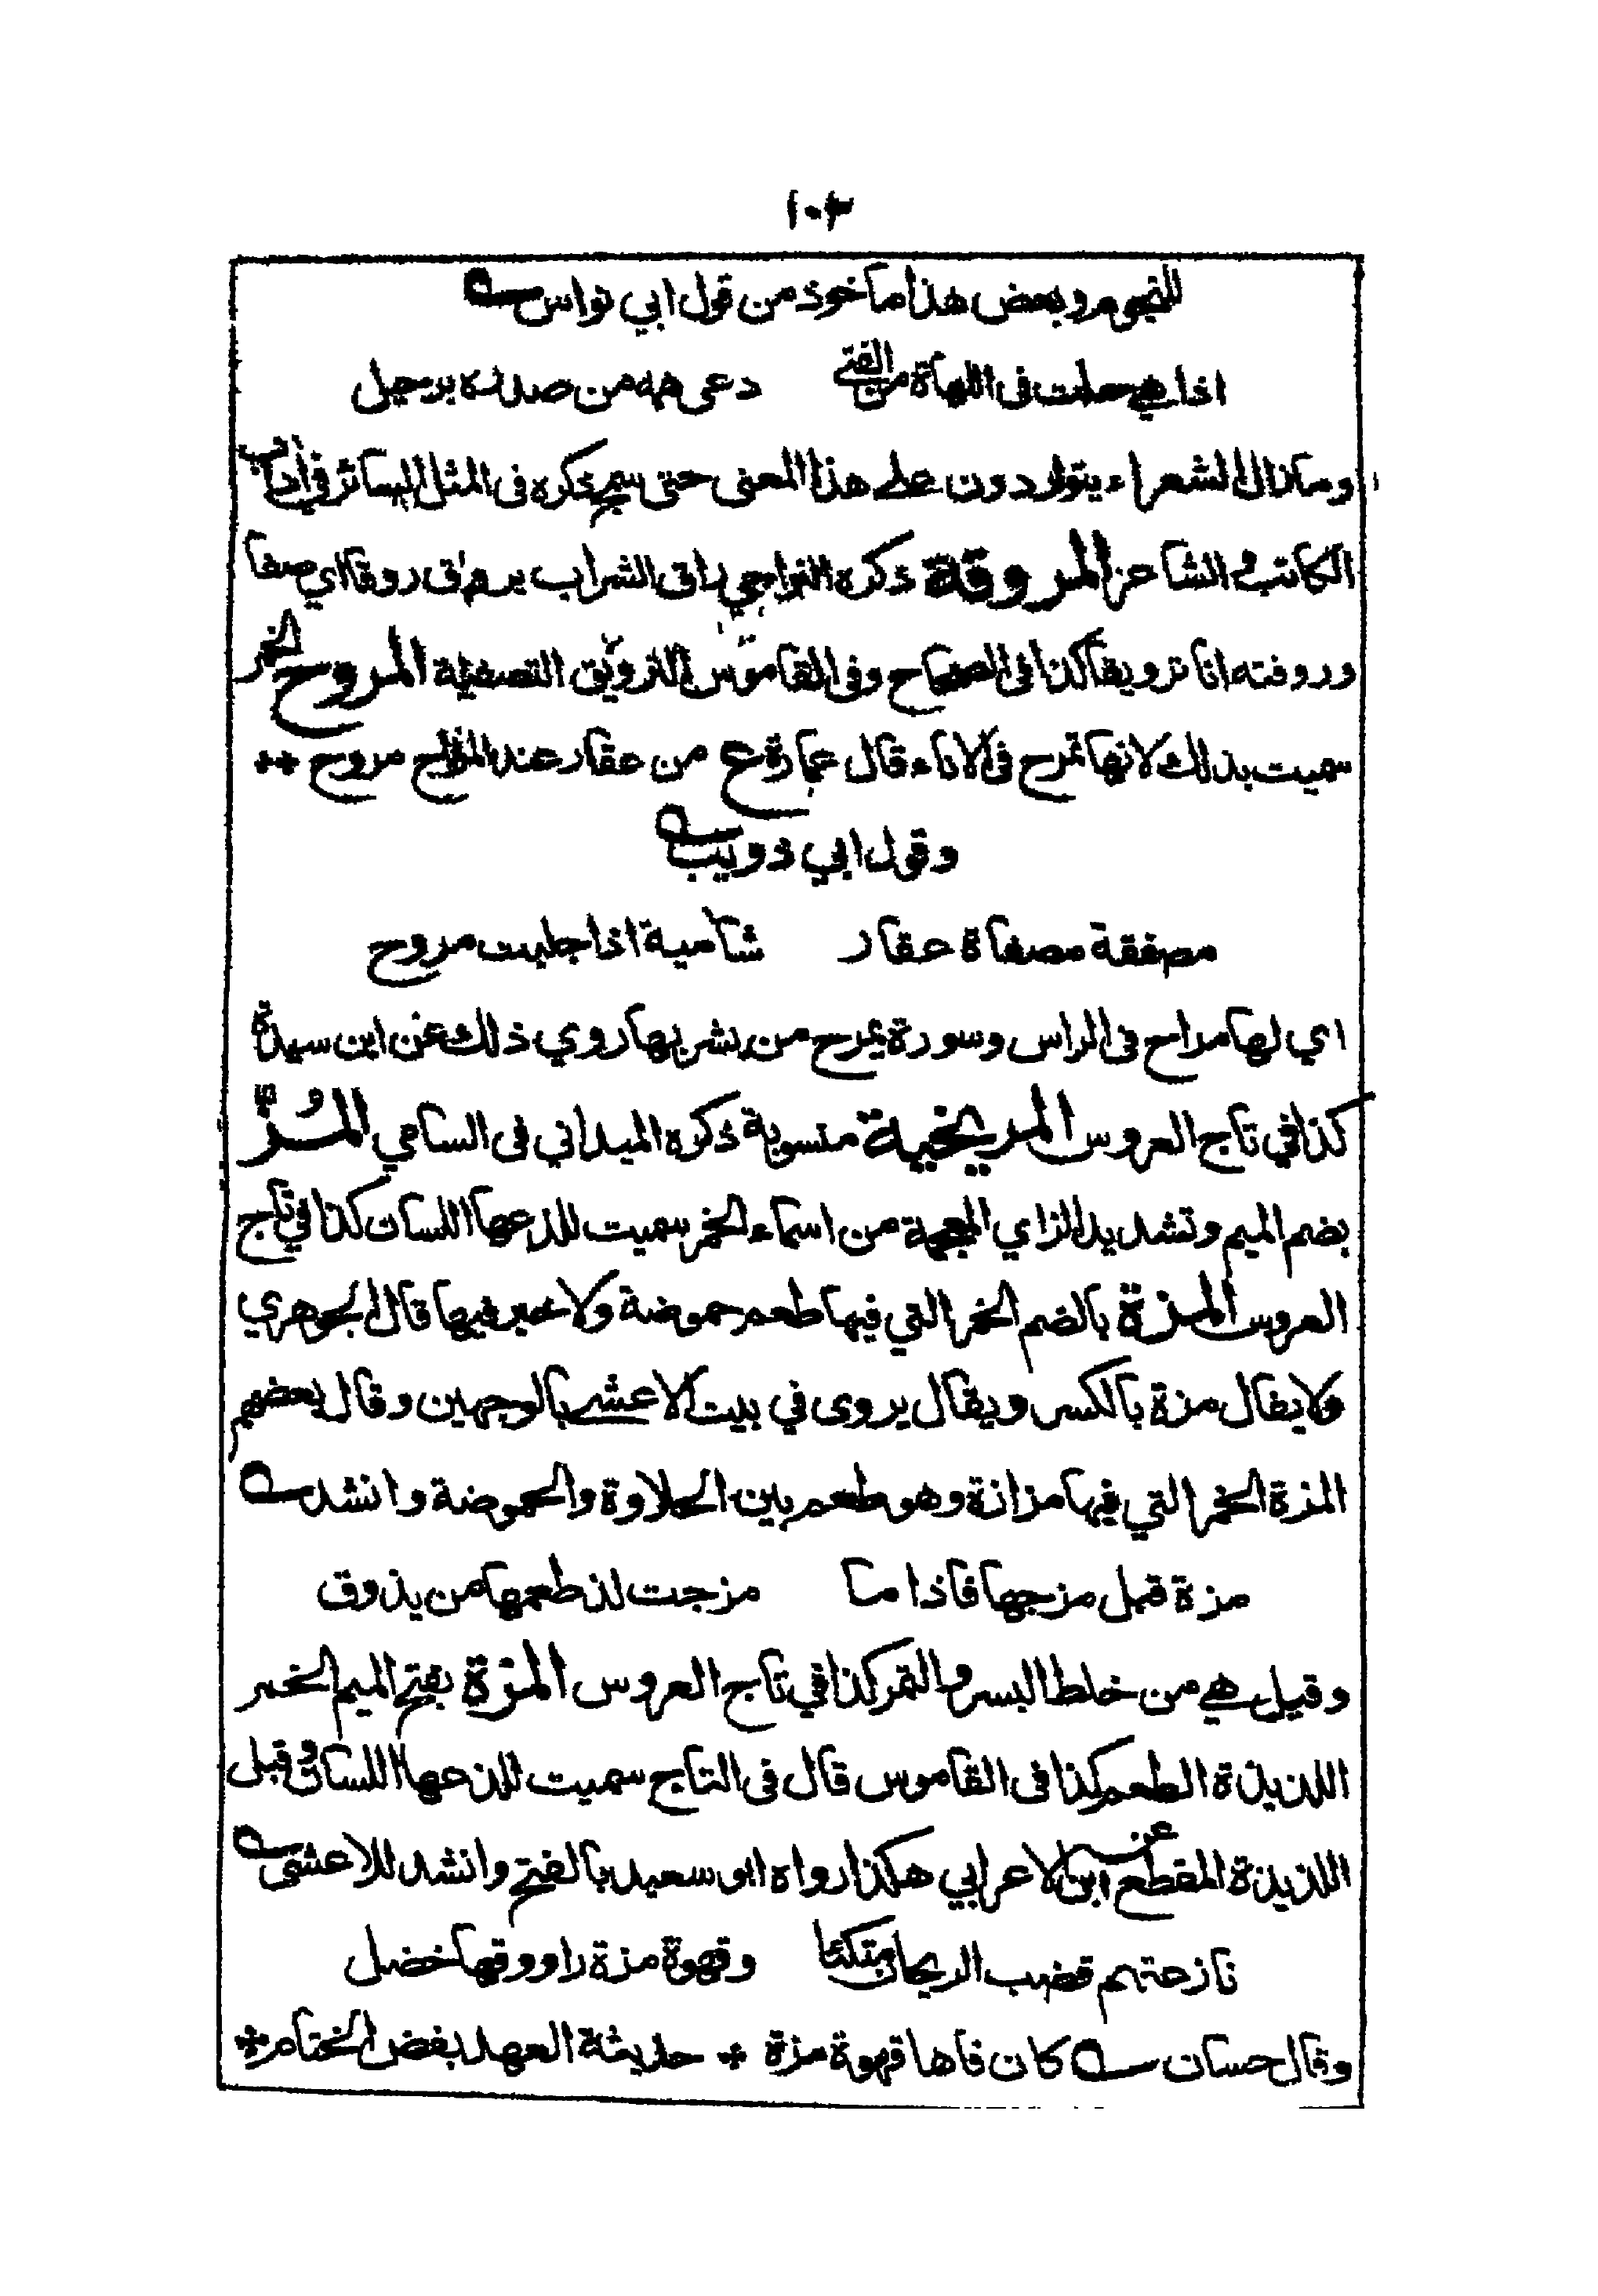 ١٠٣
للنجوم وبعض هذا ماخوذ من قول ابي نواس
اذا هي حلت فى اللهاة من الفتى دعى همه من صدره برحيل
وما زال الشعراء يتواردون على هذا المعنى حتى ذكره فى المثل السائر في اداب
الكاتب والشاعر المروقة ذكره النواجي راق الشراب يروق روقا اي صفا
وروقته انا ترويقا كذا فى الصحاح وفى القاموس الترويق التصفية المروح الخمر
سميت بذلك لانها تمرح فى الاناء قال عمارة ع من عقار عند المزاج مروح **
وقول ابي ذويب
مصفقة مصفاة عقار شامية اذا جليت مروح
اي لها مراح فى الراس وسورة يمرح من يشربها روي ذلك عن ابن سيدة
كذا في تاج العروس المريخية منسوبة ذكره الميداني فى السامي المُزّ
بضم الميم وتشديد الزاي المعجمة من اسماء الخمر سميت للذعها اللسان كذا في تاج
العروس المزة بالضم الخمر التي فيها طعم حموضة ولا خير فيها قال الجوهري
ولا يقال مزة بالكسر ويقال يروى في بيت الاعشى بالوجهين وقال بعضهم
المزة الخمر التي فيها مزازة وهو طعم بين الحلاوة والحموضة وانشد
مزة قبل مزجها فاذا ما مزجت لذ طعمها من يذوق
وقيل هي من خلط البسر والتمر كذا في تاج العروس المزة بفتح الميم الخمر
اللذيذة الطعم كذا فى القاموس قال فى التاج سميت للذعها اللسان وقيل
اللذيذة المقطع عن ابن الاعرابي هكذا رواه ابو سعيد بالفتح وانشد للاعشى
نازعتهم قضب الريحان متكئا وقهوة مزة راووقها خضل
وقال حسان كان فاها قهوة مزة * حديثة العهد بفض الختام *